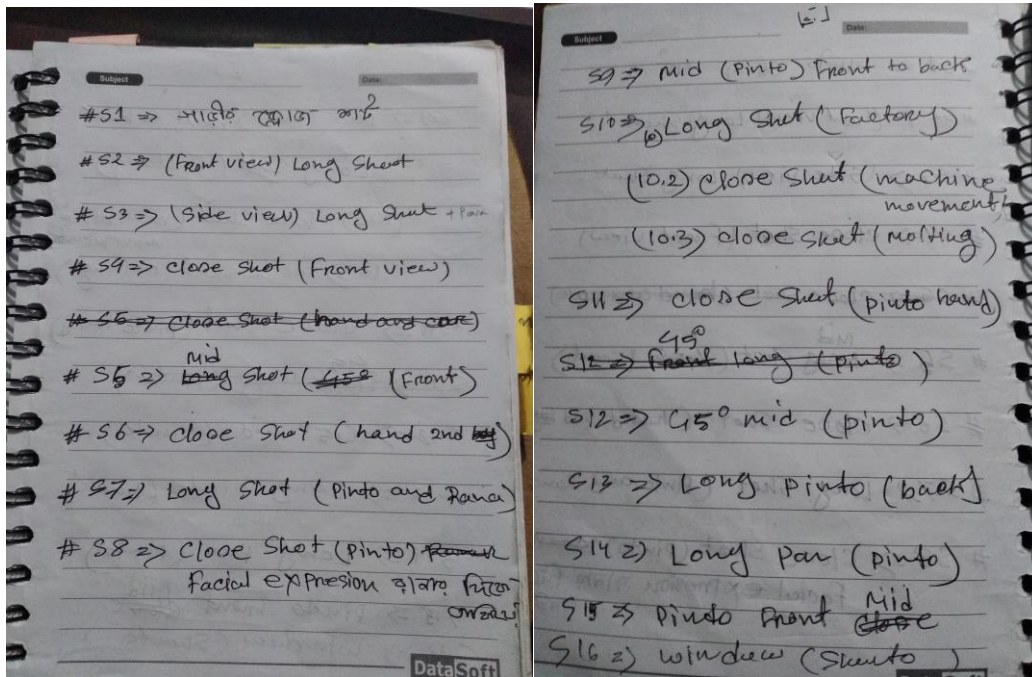 Subject
Date:
#S1 => গাড়ীর
#S2 => (Front view) Long Shoot
#S3 => (Side view) Long Shut + Pan
# S4 => close shot (Front view)
# S5 => Close Shot (hand and
mid
# S5 => Long Shot (45° (Front)
# S6 => close shot (hand 2nd
# S7 => Long Shot (Pinto and Rana)
# S8 => Close Shot (Pinto)
Facial expresion রানার দিকে
DataSoft
Subject
Date:
S9 => Mid (Pinto) Front to back
S10 => Long Shut (Factory)
(10.2) close Shut (machine
movement)
(10.3) close Shut (molting)
S11 => close Shut (pinto hand)
45°
S12 => Front long (pinto)
S12 => 45° mid (pinto)
S13 => Long pinto (back)
S14 => Long Pan (pinto)
Mid
S15 => Pinto Front Close
S16 => window (Shunto)
DataSoft